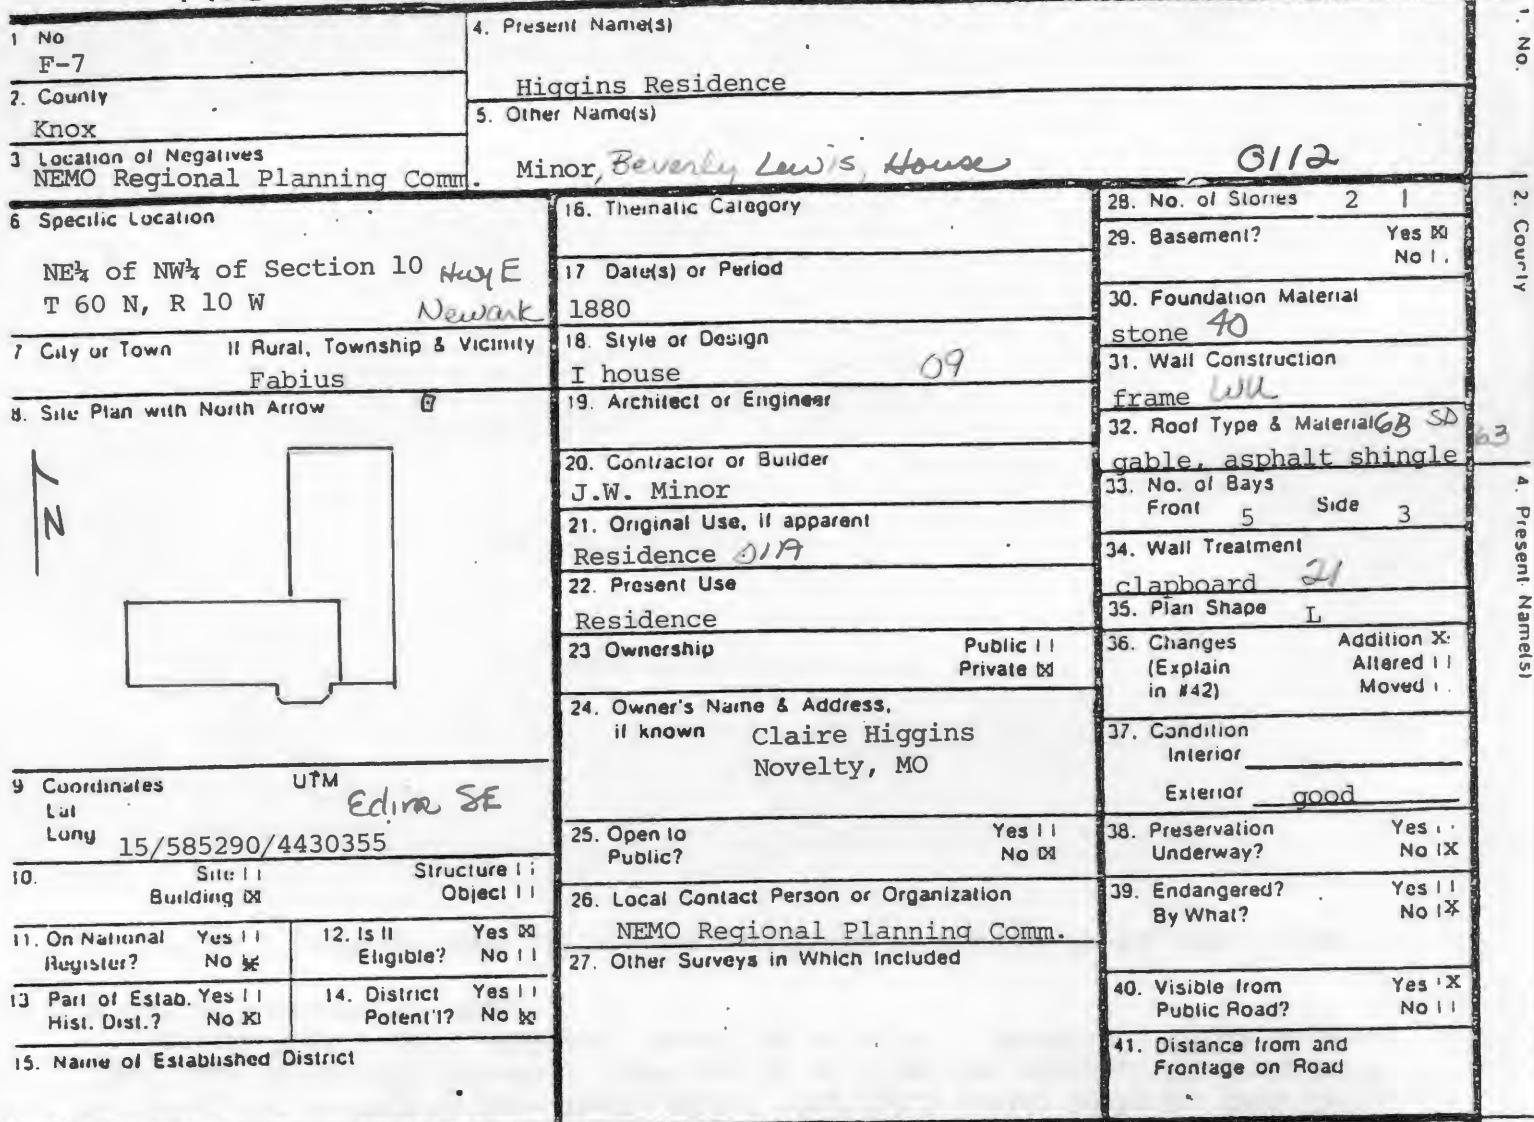 1 No
F-7
2. County
Knox
3 Location of Negatives
NEMO Regional Planning Comm.
4. Present Name(s)
Higgins Residence
5. Other Name(s)
Minor, Beverly Lewis, House 0112
6 Specific Location
NE¼ of NW¼ of Section 10 Hwy E
T 60 N, R 10 W Newark
7 City or Town If Rural, Township & Vicinity
Fabius
8. Site Plan with North Arrow
N
9 Coordinates UTM
Lat Edina SE
Long 15/585290/4430355
10. Site [ ] Structure [ ]
Building [X] Object [ ]
11. On National Register? Yes [ ] No [X]
12. Is It Eligible? Yes [X] No [ ]
13 Part of Estab. Hist. Dist.? Yes [ ] No [X]
14. District Potent'l? Yes [ ] No [X]
15. Name of Established District
16. Thematic Category
17 Date(s) or Period
1880
18. Style or Design
I house 09
19. Architect or Engineer
20. Contractor or Builder
J.W. Minor
21. Original Use, if apparent
Residence 01A
22. Present Use
Residence
23 Ownership Public [ ]
Private [X]
24. Owner's Name & Address,
if known Claire Higgins
Novelty, MO
25. Open to Yes [ ]
Public? No [X]
26. Local Contact Person or Organization
NEMO Regional Planning Comm.
27. Other Surveys in Which Included
28. No. of Stories 2
29. Basement? Yes [X]
No [ ]
30. Foundation Material
stone 40
31. Wall Construction
frame WU
32. Roof Type & Material GB SD 63
gable, asphalt shingle
33. No. of Bays
Front 5 Side 3
34. Wall Treatment
clapboard 21
35. Plan Shape L
36. Changes Addition [X]
(Explain Altered [ ]
in #42) Moved [ ]
37. Condition
Interior
Exterior good
38. Preservation Yes [ ]
Underway? No [X]
39. Endangered? Yes [ ]
By What? No [X]
40. Visible from Yes [X]
Public Road? No [ ]
41. Distance from and
Frontage on Road
1. No.
2. County
4. Present Name(s)